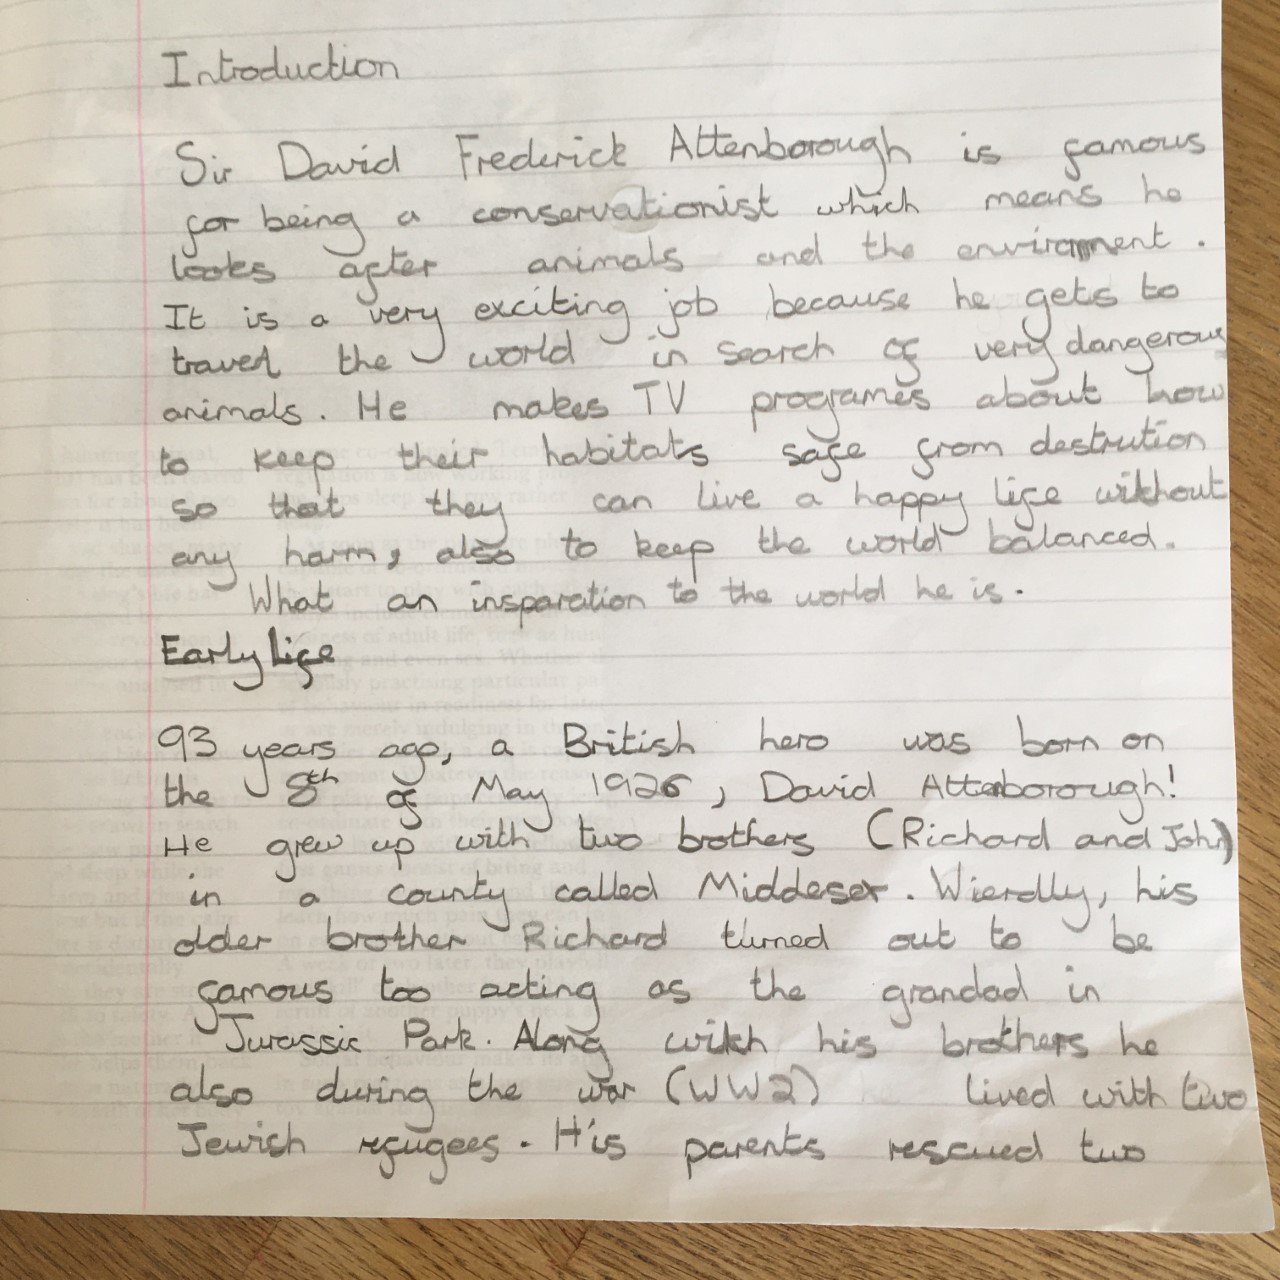 Introduction
Sir David Frederick Attenborough is famous
for being a conservationist which means he
looks after animals and the enviroment.
It is a very exciting job because he gets to
travel the world in search of very dangerous
animals. He makes TV programes about how
to keep their habitats safe from destrution
so that they can live a happy life without
any harm, also to keep the world balanced.
What an insparation to the world he is.
Early life
93 years ago, a British hero was born on
the 8th of May 1926, David Attenborough!
He grew up with two brothers (Richard and John)
in a county called Middesex. Wierdly, his
older brother Richard turned out to be
famous too acting as the grandad in
Jurassic Park. Along with his brothers he
also during the war (WW2) lived with two
Jewish refugees. His parents rescued two